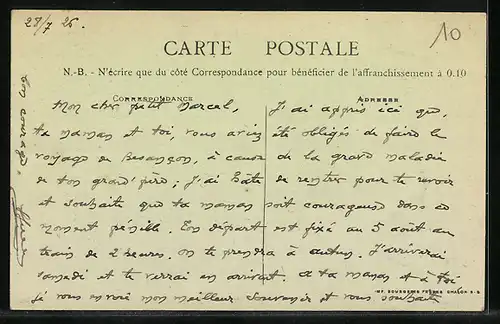 28/7 26.
10
CARTE POSTALE
N.-B. - N'écrire que du côté Correspondance pour bénéficier de l'affranchissement à 0.10
CORRESPONDANCE
ADRESSE
Mon cher petit Marcel, J'ai appris ici que,
ta maman et toi, vous aviez été obligés de faire le
voyage de Besançon, à cause de la grave maladie
de ton grand'père; J'ai hâte de rentrer pour te revoir
et souhaite que ta maman soit courageuse dans ce
moment pénible. Ton départ est fixé au 5 août au
train de 2 heures. On te prendra à Autun. J'arriverai
samedi et te verrai en arrivant. A ta maman et à toi
je vous envoie mon meilleur souvenir et vous souhaite
bon courage.
IMP. BOURGEOIS FRÈRES CHALON-S-S